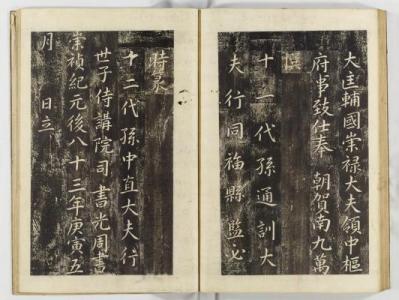 大匡輔國崇祿大夫領中樞
府事致仕奉 朝賀南九萬
撰
十一代孫通訓大
夫行同福縣監必
特
十二代孫中直大夫行
世子侍講院司書光周書
崇禎紀元後八十三年庚寅五
月 日立